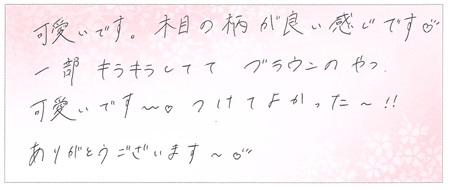 可愛いです。木目の柄が良い感じです♡
一部キラキラしてて ブラウンのやつ
可愛いです〜♡ つけてよかった〜!!
ありがとうございます〜♡